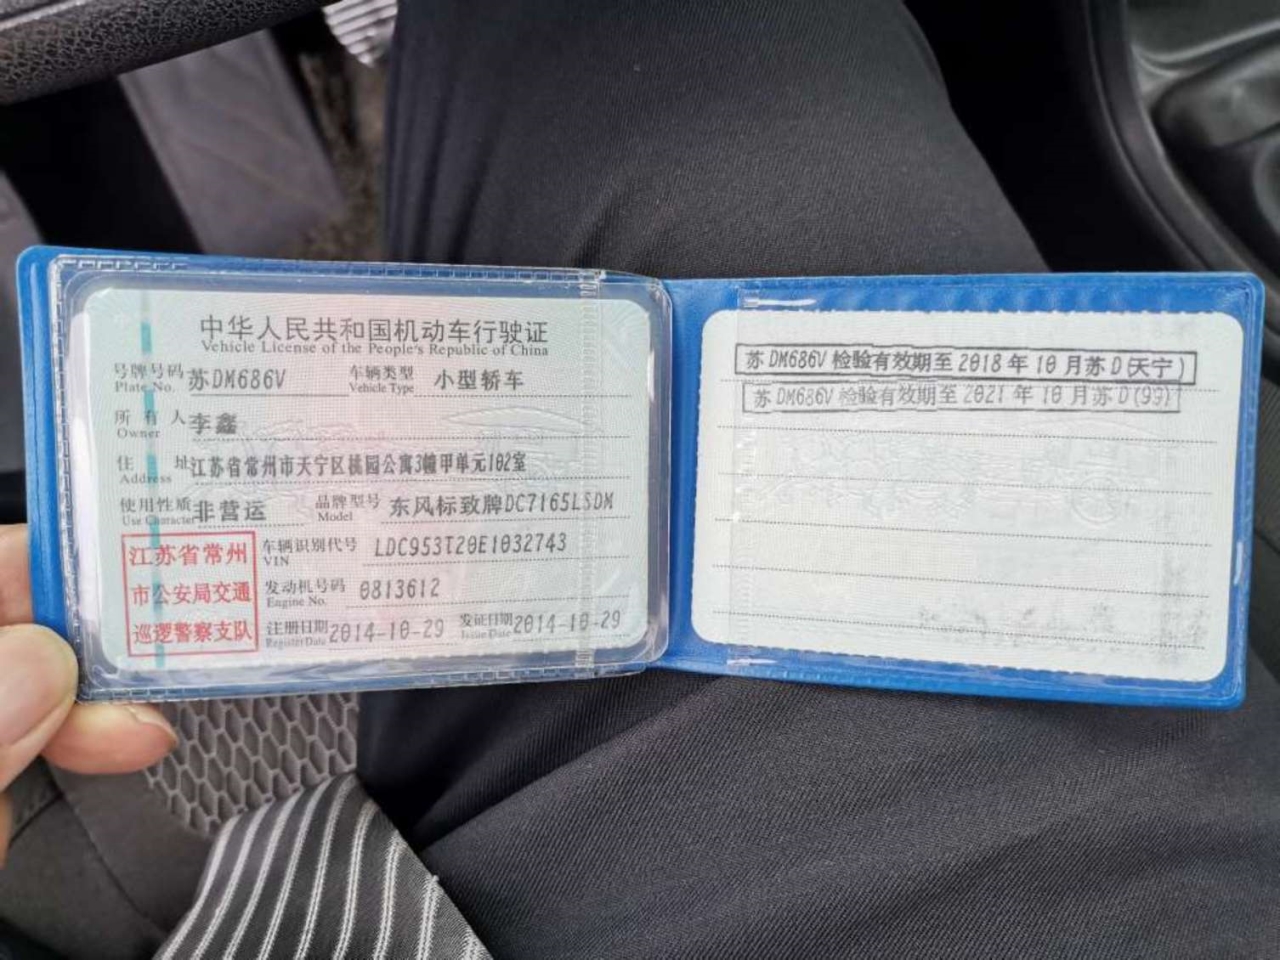 中华人民共和国机动车行驶证
Vehicle License of the People's Republic of China
号牌号码 苏DM686V 车辆类型 小型轿车
Plate No. Vehicle Type
所有人 李鑫
Owner
住址 江苏省常州市天宁区桃园公寓3幢甲单元102室
Address
使用性质 非营运 品牌型号 东风标致牌DC7165LSDM
Use Character Model
江苏省常州
市公安局交通
巡逻警察支队
车辆识别代号 LDC953T20E1032743
VIN
发动机号码 0813612
Engine No.
注册日期 2014-10-29 发证日期 2014-10-29
Register Date Issue Date
苏DM686V 检验有效期至 2018 年 10 月苏 D(天宁)
苏 DM686V 检验有效期至 2021 年 10 月苏 D(99)